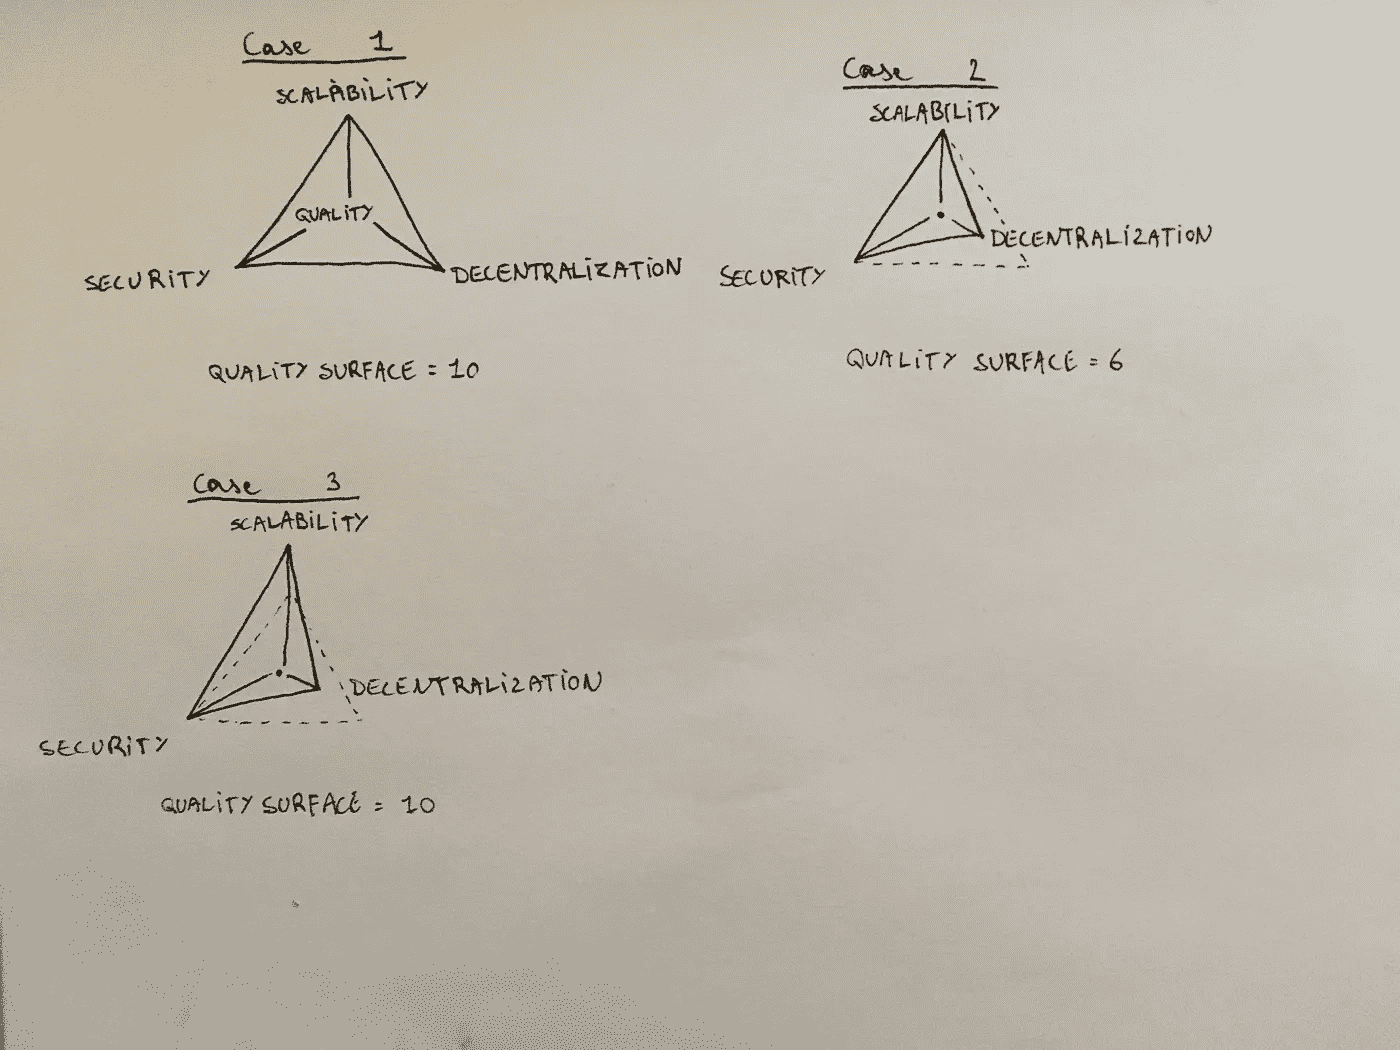 Case 1
SCALABILITY
QUALITY
SECURITY
DECENTRALIZATION
QUALITY SURFACE = 10
Case 2
SCALABILITY
DECENTRALIZATION
SECURITY
QUALITY SURFACE = 6
Case 3
SCALABILITY
DECENTRALIZATION
SECURITY
QUALITY SURFACE = 10